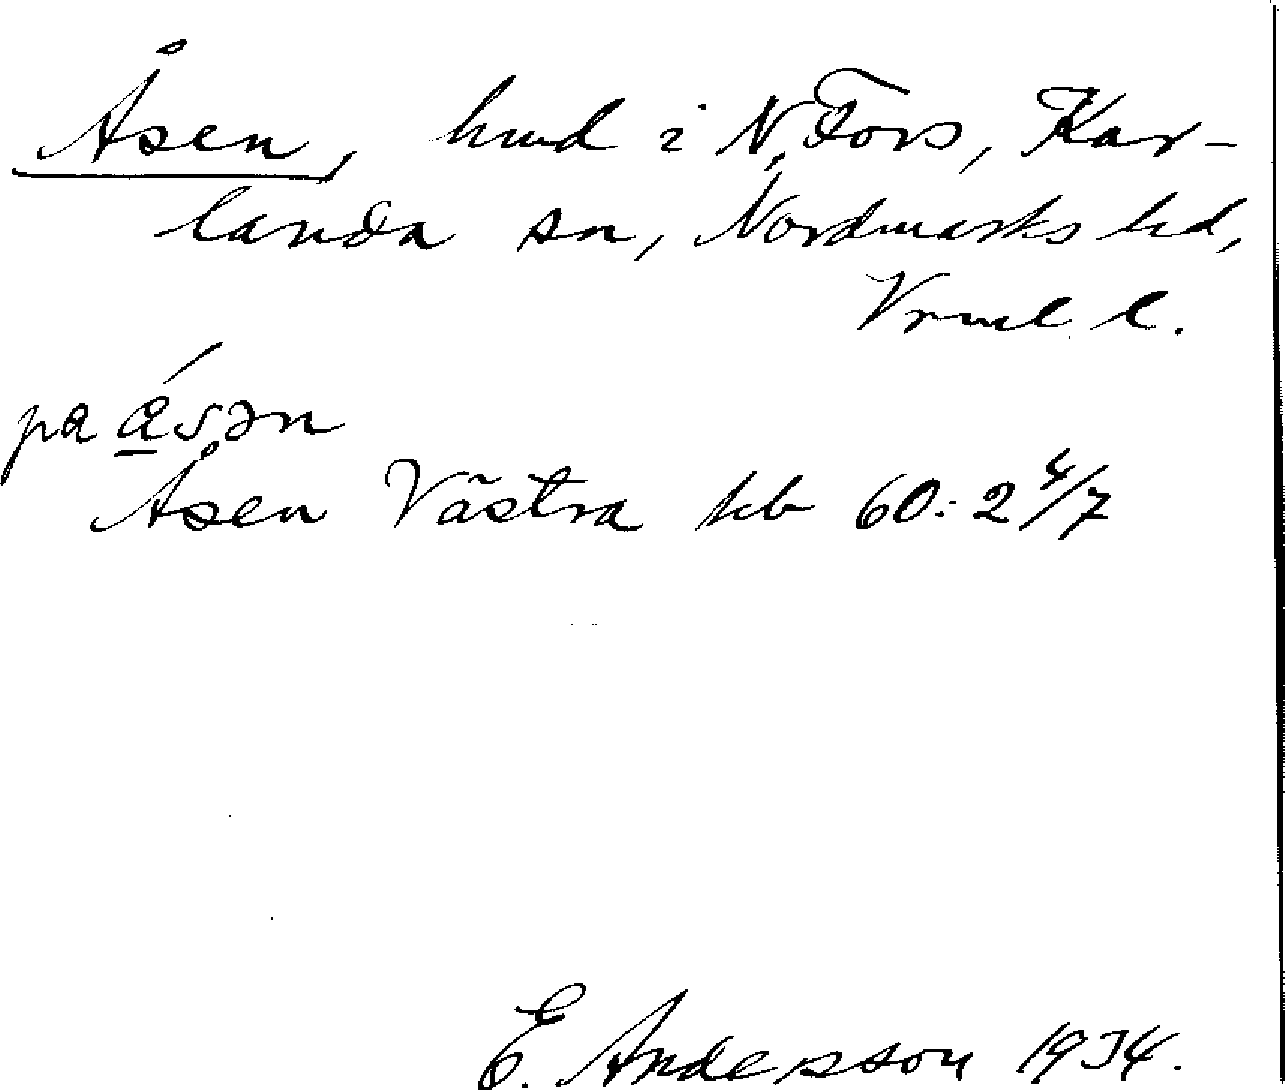 Åsen, hmd i N. Fors, Kar-
landa sn, Nordmarks hd,
Vrml. l.
pa åsən
Åsen Västra kb 60:2 4/7
E. Andersson 1934.